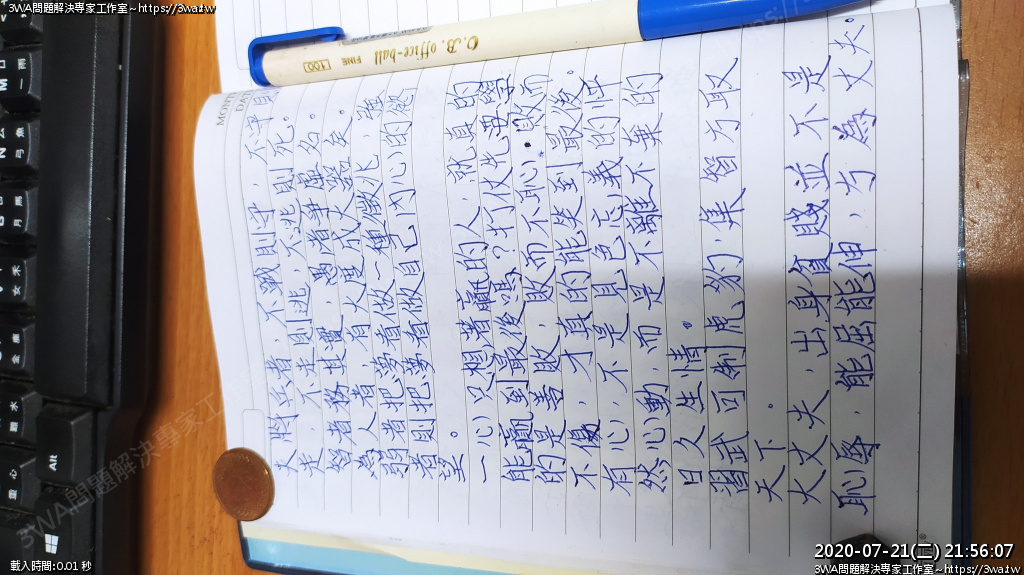 3WA問題解決專家工作室~https://3wa.tw
3WA問題解決專家工作室~https://3wa.tw
O.B. office-ball
FINE
100
夫將兵者,不戰則守,不守則
走,不走則逃,不逃則死。
智者務其實,愚者爭虛名。
為人者,有大度成大器矣。
弱者把夢看做一種徵兆,強
者則把夢看做自己內心的慾
望。
一心只想著贏的人,就真的
能贏到最後嗎?打仗先要學
的是善敗,敗而不恥,敗而
不傷,才真的能笑到最後。
有心,不是見色忘義的怦
然心動,而是不離不棄的
日久生情。
習武可制虎豹,集智方取
天下。
大丈夫,出身貧賤並不是
恥辱,能屈能伸,方為丈夫。
Alt
載入時間:0.01 秒
2020-07-21(二) 21:56:07
3WA問題解決專家工作室~https://3wa.tw